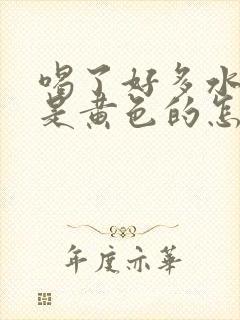 喝了好多水
是黄色的怎
年度亦华